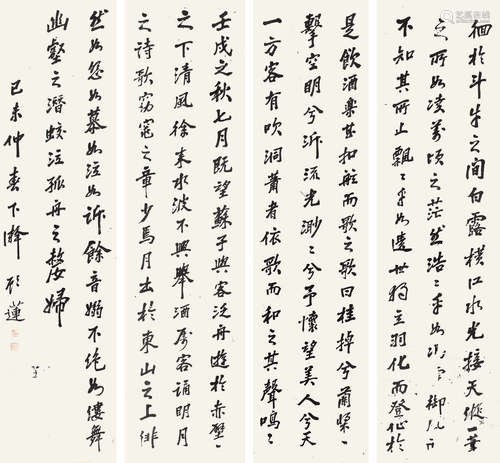 徊於斗牛之間白露橫江水光接天縱一葦
之所如凌萬頃之茫然浩〻乎如馮虛御風而
不知其所止飄〻乎如遺世獨立羽化而登仙於
是飲酒樂甚扣舷而歌之歌曰桂棹兮蘭槳〻
擊空明兮泝流光渺〻兮予懷望美人兮天
一方客有吹洞簫者依歌而和之其聲嗚〻
壬戌之秋七月既望蘇子與客泛舟遊於赤壁〻
之下清風徐來水波不興舉酒屬客誦明月
之詩歌窈窕之章少焉月出於東山之上徘
然如怨如慕如泣如訴餘音嫋不絕如縷舞
幽壑之潛蛟泣孤舟之嫠婦
己未仲春下澣 蓮